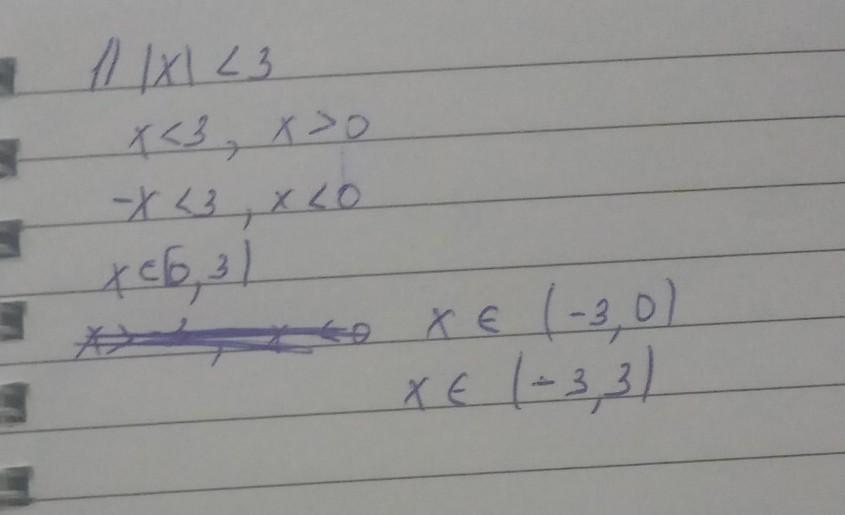 1) |x| < 3
x < 3, x > 0
-x < 3, x < 0
x ∈ [0, 3)
x ∈ (-3, 0)
x ∈ (-3, 3)